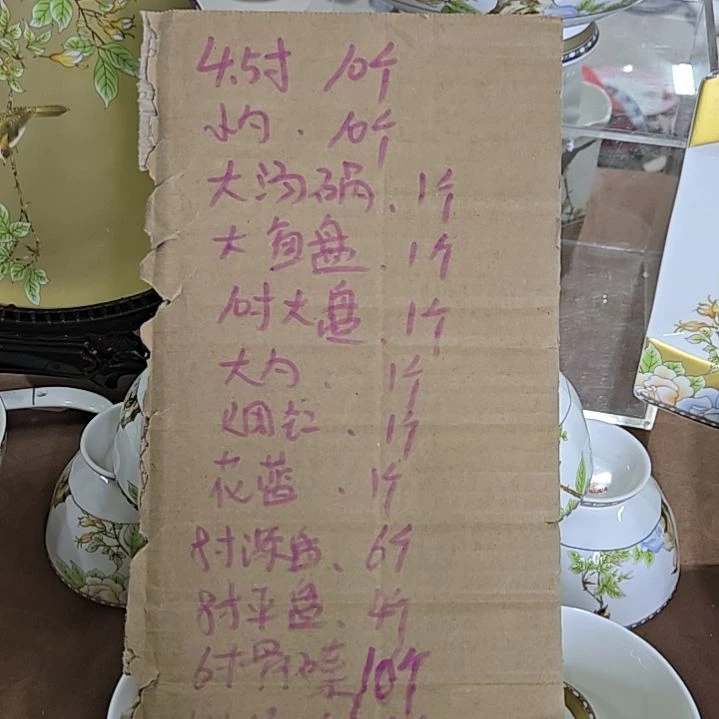 4.5寸 10个
小勺. 10个
大汤碗. 1个
大鱼盘. 1个
10寸大盘. 1个
大勺. 1个
烟缸. 1个
花蓝. 1个
8寸深盘. 6个
8寸平盘. 4个
6寸骨碟 10个